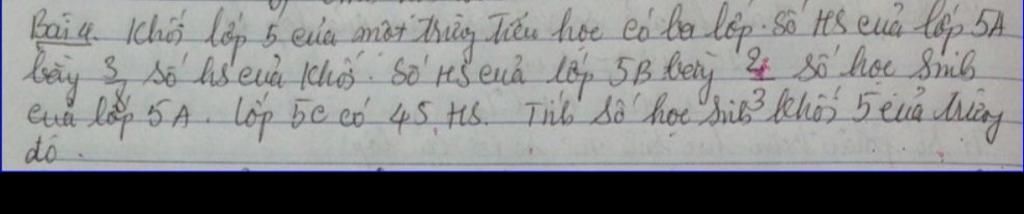 Bài 4. Khối lớp 5 của một trường Tiểu học có ba lớp. Số HS của lớp 5A
bằng 3/8 số hs của khối. Số HS của lớp 5B bằng 2/3 số học sinh
của lớp 5A. Lớp 5C có 45 HS. Tính số học sinh khối 5 của trường
đó.